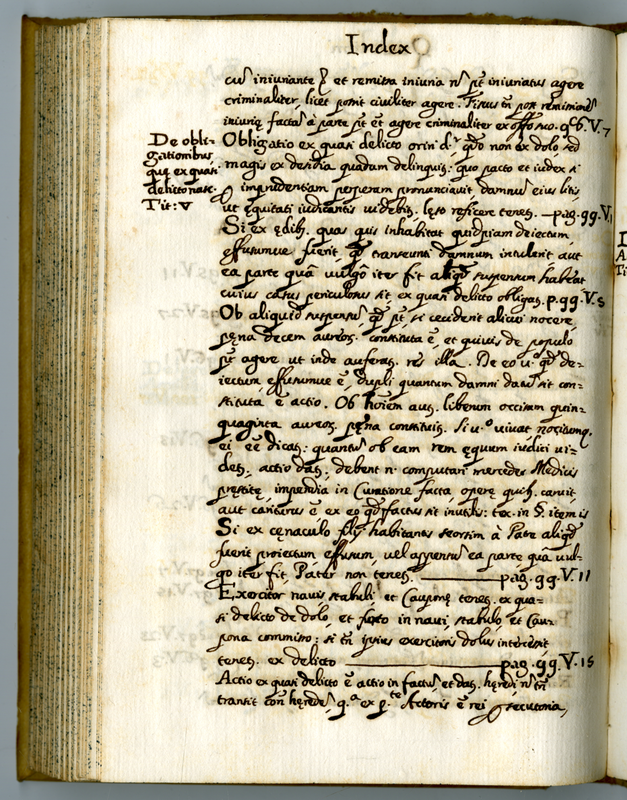 Index
cũ iniuriante et remitra iniuria nõ põt iniuriatus agere
criminaliter, licet possit civiliter agere. tñ post remissionẽ
iniuriæ factã à parte põt et agere criminaliter ex offo suo. V. 7
De obli-
gationibus
quæ ex quasi
delicto nasc.
Tit: V
Obligatio ex quasi delicto orit.r qñdo non ex dolo sed
magis ex desidia quadam delinquit.: quo pacto et iudex si
p imprudentiam perperam pronunciavit damnũ eius litis
ut equitati iudicantis videbit., læso reficere tenet. — pag. 99. V. 1
Si ex ędib. quas quis inhabitat quidpiam deiectum,
effusumue fuerit, qđ transeunti damnum intulerit aut
ea parte quâ vulgò iter fit aliqđ suspensum habeat
cuius casus periculosus sit, ex quasi delicto obligat. p. 99. V. 5
Ob aliquid suspensũ, qđ põt, si ceciderit alicui nocere,
pęna decem aureor. constituta ẽ, et quivis de populo
põt agere ut inde auferat. res illa. De eo v.o qđ de-
iectum, effusumue ẽ, dupli quantum damni datũ sit con-
stituta ẽ actio. Ob hoiem aut. liberum occisum quin-
quaginta aureor. pęna constituit. Si v.o vivat nocitumq.
ei eẽ dicat.: quantũ ob eam rem ęquum iudici vi-
det. actio dat.; debent n. computari mercedes Medicis
pręstitę, impendia in Curatione facta, operę quib. caruit,
aut cariturus ẽ ex eo qđ factus sit inutilis: tex. in §. item is
Si ex cęnaculo filij habitantis seorsim à Patre aliqđ
fuerit proiectum effusum, vel appensũ ea parte quâ vul-
go iter fit, Pater non tenet. — pag. 99. V. 11
Exercitor navis stabuli et Cauponę tenet. ex qua-
si delicto de dolo, et furto in navi, stabulo, et Cau-
pona commisso; si tñ ipsius exercitoris dolus interessit
tenet. ex delicto — pag. 99. V. 15
Actio ex quasi delicto ẽ actio in factũ et dat. hęredi, nõ tñ
transit con hęredẽ q.a ex p.te Actoris ẽ rei psecutoria,